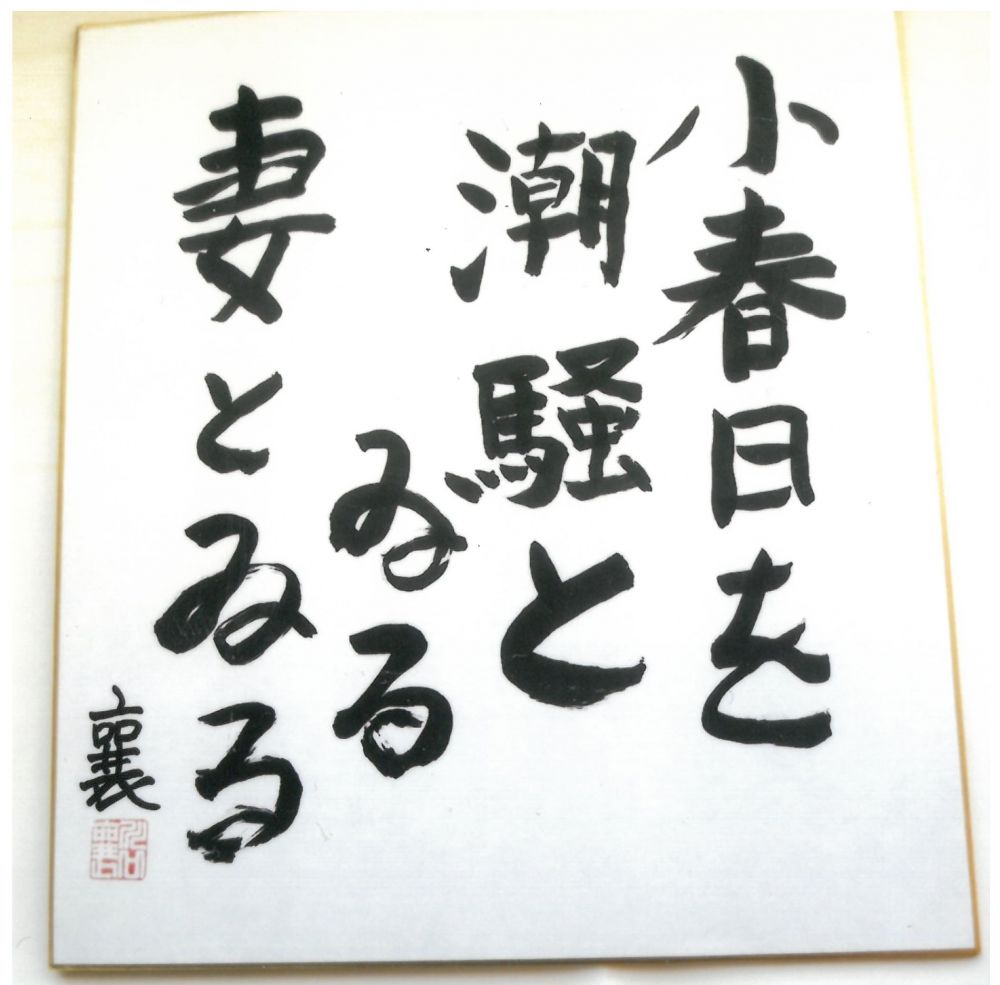 小春日を
潮騒と
ゐる
妻とゐる
襄